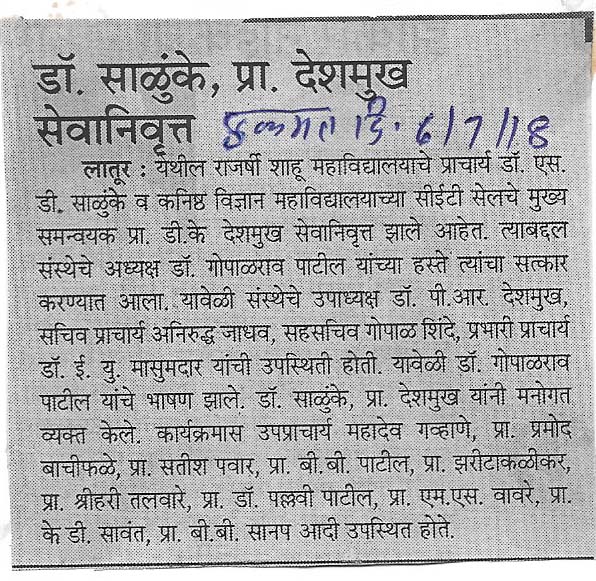 डॉ. साळुंके, प्रा. देशमुख
सेवानिवृत्त एकमत दि. 6/7/18
लातूर : येथील राजर्षी शाहू महाविद्यालयाचे प्राचार्य डॉ. एस.
डी. साळुंके व कनिष्ठ विज्ञान महाविद्यालयाच्या सीईटी सेलचे मुख्य
समन्वयक प्रा. डी.के देशमुख सेवानिवृत्त झाले आहेत. त्याबद्दल
संस्थेचे अध्यक्ष डॉ. गोपाळराव पाटील यांच्या हस्ते त्यांचा सत्कार
करण्यात आला. यावेळी संस्थेचे उपाध्यक्ष डॉ. पी.आर. देशमुख,
सचिव प्राचार्य अनिरुद्ध जाधव, सहसचिव गोपाळ शिंदे, प्रभारी प्राचार्य
डॉ. ई. यु. मासुमदार यांची उपस्थिती होती. यावेळी डॉ. गोपाळराव
पाटील यांचे भाषण झाले. डॉ. साळुंके, प्रा. देशमुख यांनी मनोगत
व्यक्त केले. कार्यक्रमास उपप्राचार्य महादेव गव्हाणे, प्रा. प्रमोद
बाचीफळे, प्रा. सतीश पवार, प्रा. बी.बी. पाटील, प्रा. झरीटाकळीकर,
प्रा. श्रीहरी तलवारे, प्रा. डॉ. पल्लवी पाटील, प्रा. एम.एस. वावरे, प्रा.
के डी. सावंत, प्रा. बी.बी. सानप आदी उपस्थित होते.